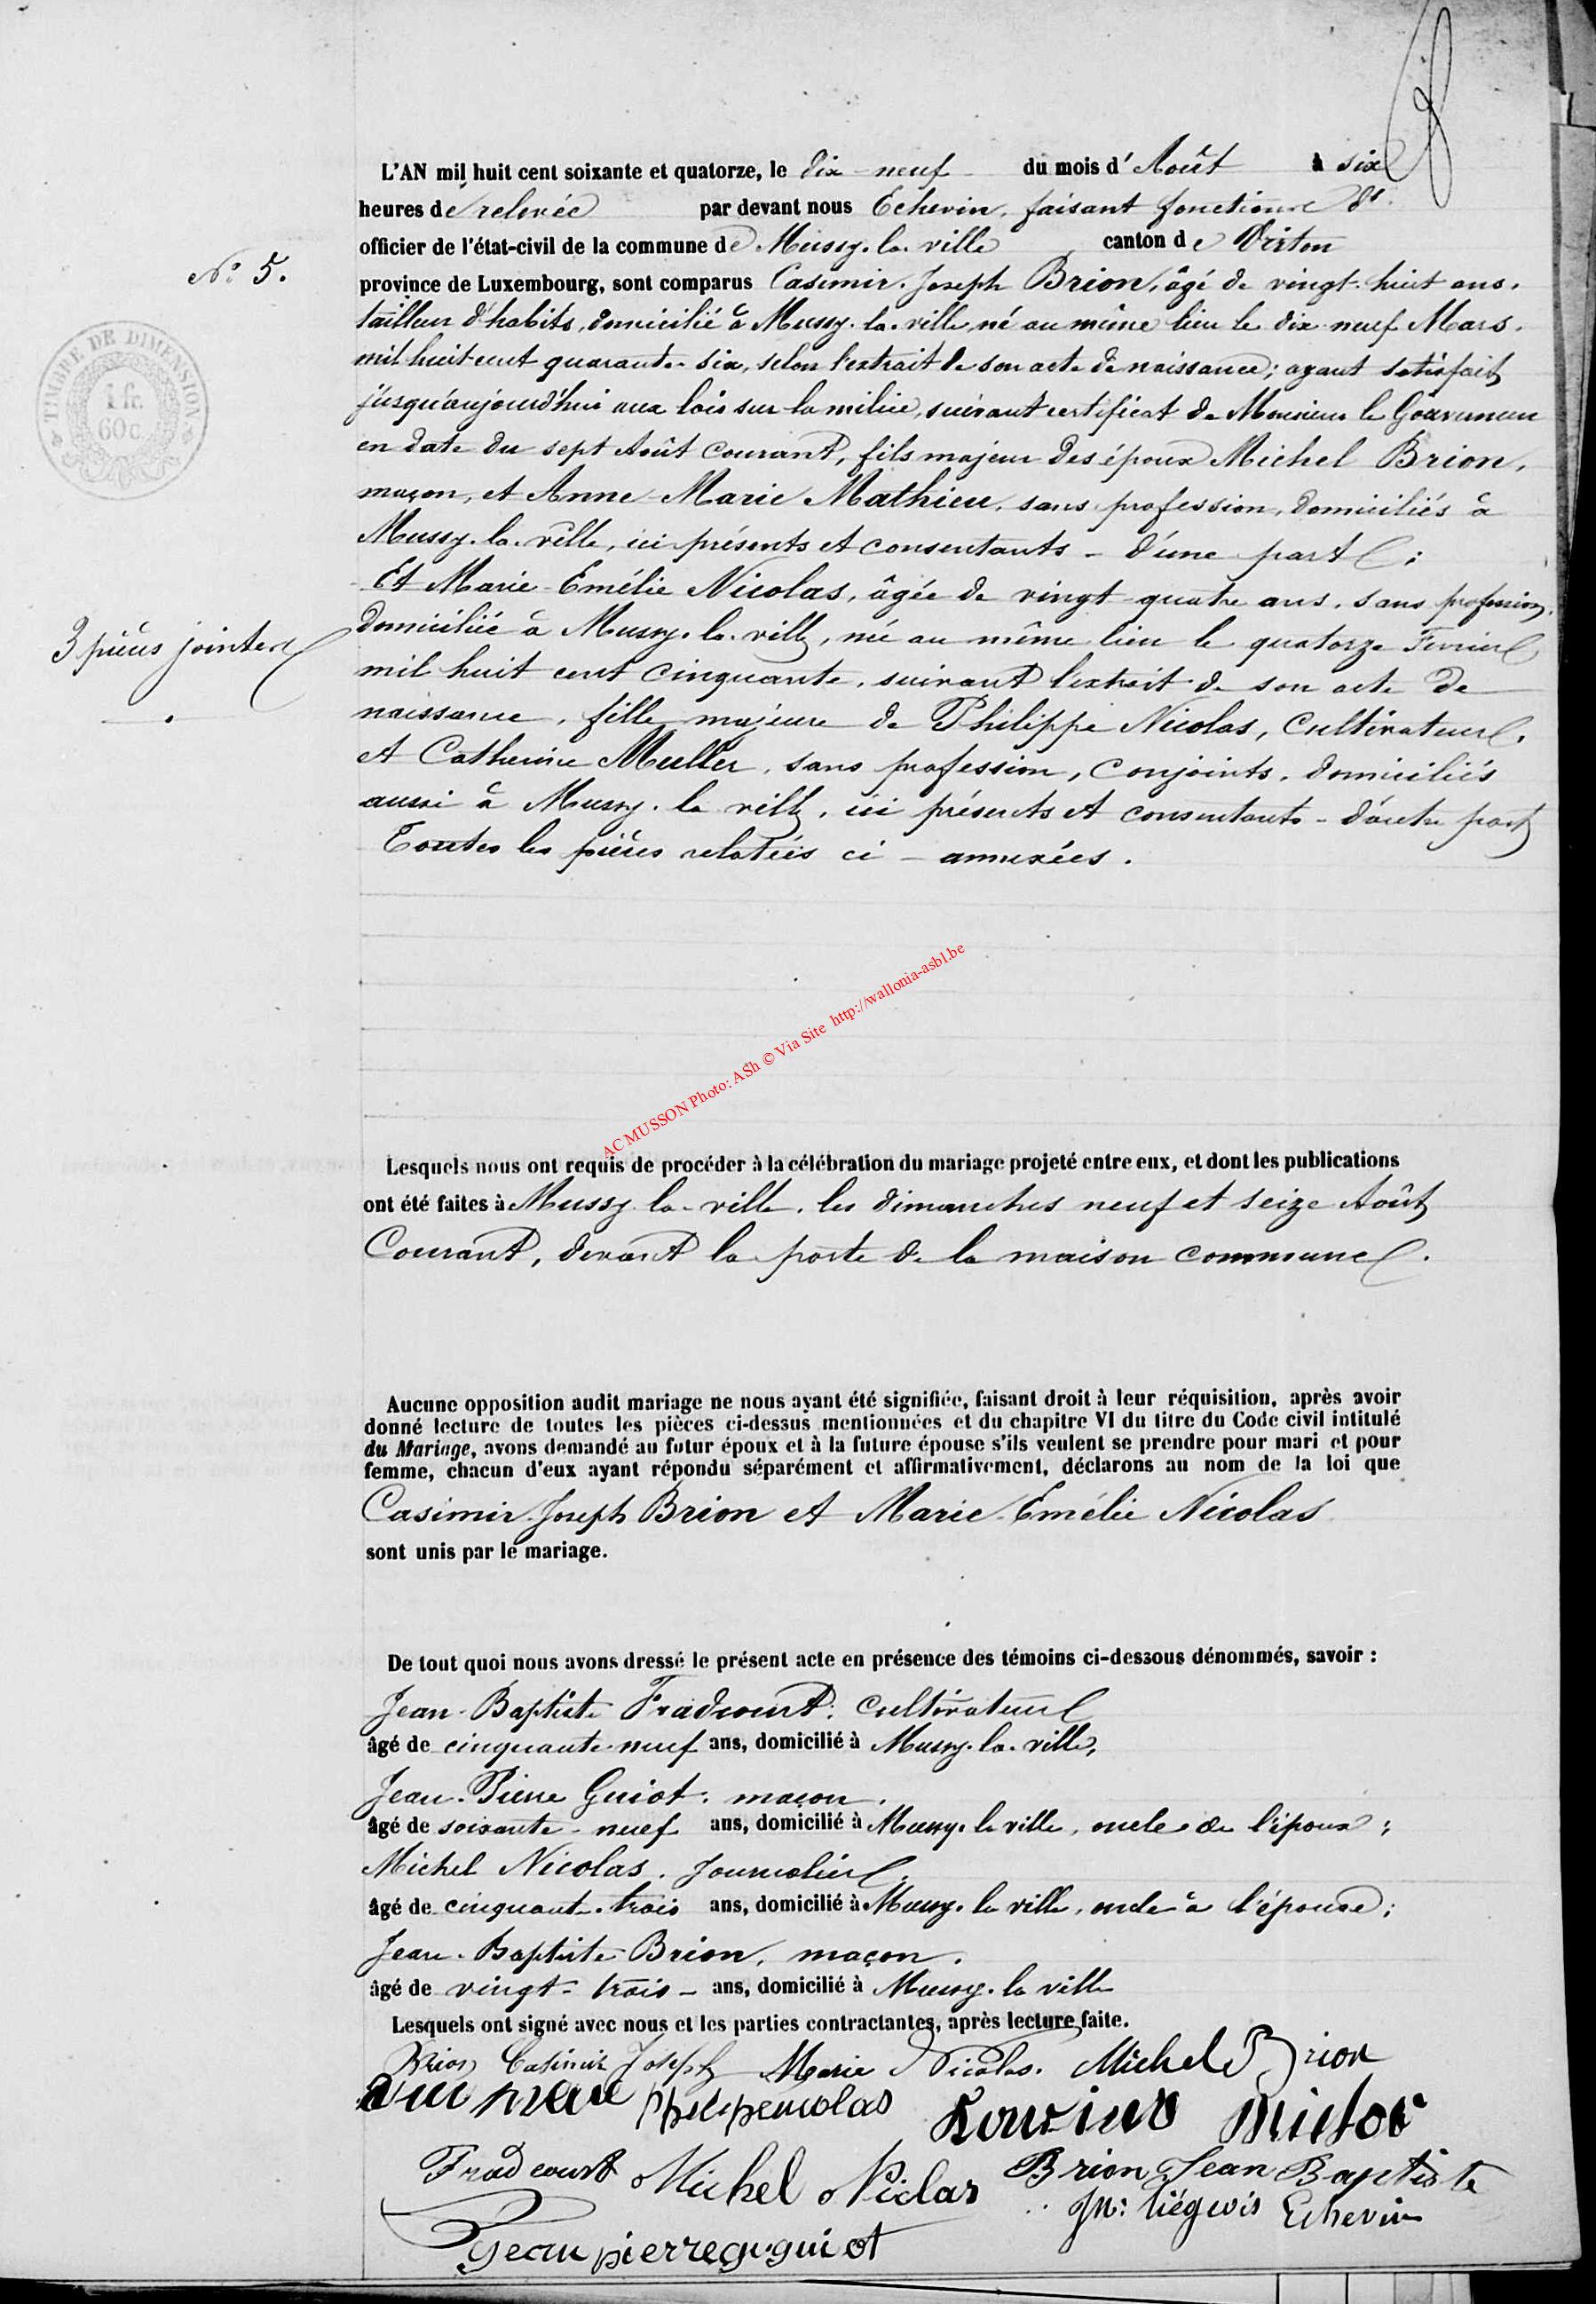 L'AN mil huit cent soixante et quatorze, le dix-neuf du mois d'Août à six
heures de relevée par devant nous Echevin, faisant fonctions d'
officier de l'état-civil de la commune de Mussy-la-ville canton de Virton
N° 5.
province de Luxembourg, sont comparus Casimir-Joseph Brion, âgé de vingt-huit ans,
tailleur d'habits, domicilié à Mussy-la-ville, né au même lieu le dix-neuf Mars
TIMBRE DE DIMENSION
1 fr.
60 c.
mil huit cent quarante-six, selon l'extrait de son acte de naissance; ayant satisfait
jusqu'aujourd'hui aux lois sur la milice, suivant certificat de Monsieur le Gouverneur
en date du sept Août courant, fils majeur des époux Michel Brion,
maçon, et Anne-Marie Mathieu, sans profession, domiciliés à
Mussy-la-ville, ici présents et consentants - d'une part;
Et Marie-Emélie Nicolas, âgée de vingt-quatre ans, sans profession,
3 pièces jointes
domiciliée à Mussy-la-ville, née au même lieu le quatorze Février
mil huit cent cinquante, suivant l'extrait de son acte de
naissance, fille majeure de Philippe Nicolas, cultivateur,
et Catherine Muller, sans profession, conjoints, domiciliés
aussi à Mussy-la-ville, ici présents et consentants - d'autre part
Toutes les pièces relatées ci-annexées.
AC MUSSON Photo: ASh © Via Site http://wallonia-asbl.be
Lesquels nous ont requis de procéder à la célébration du mariage projeté entre eux, et dont les publications
ont été faites à Mussy-la-ville, les dimanches neuf et seize Août
Courant, devant la porte de la maison commune.
Aucune opposition audit mariage ne nous ayant été signifiée, faisant droit à leur réquisition, après avoir
donné lecture de toutes les pièces ci-dessus mentionnées et du chapitre VI du titre du Code civil intitulé
du Mariage, avons demandé au futur époux et à la future épouse s'ils veulent se prendre pour mari et pour
femme, chacun d'eux ayant répondu séparément et affirmativement, déclarons au nom de la loi que
Casimir-Joseph Brion et Marie-Emélie Nicolas
sont unis par le mariage.
De tout quoi nous avons dressé le présent acte en présence des témoins ci-dessous dénommés, savoir :
Jean-Baptiste Fradcourt, cultivateur
âgé de cinquante-neuf ans, domicilié à Mussy-la-ville,
Jean-Pierre Guiot, maçon,
âgé de soixante-neuf ans, domicilié à Mussy-la ville, oncle de l'époux;
Michel Nicolas, Journalier,
âgé de cinquante-trois ans, domicilié à Mussy-la ville, oncle à l'épouse;
Jean-Baptiste Brion, maçon,
âgé de vingt-trois - ans, domicilié à Mussy-la ville
Lesquels ont signé avec nous et les parties contractantes, après lecture faite.
Brion Casimir Joseph Marie Nicolas. Michel Brion
Fradcourt Michel Niclas Brion Jean Baptiste
Jn: Liégeois Echevin
Jean pierre guiot